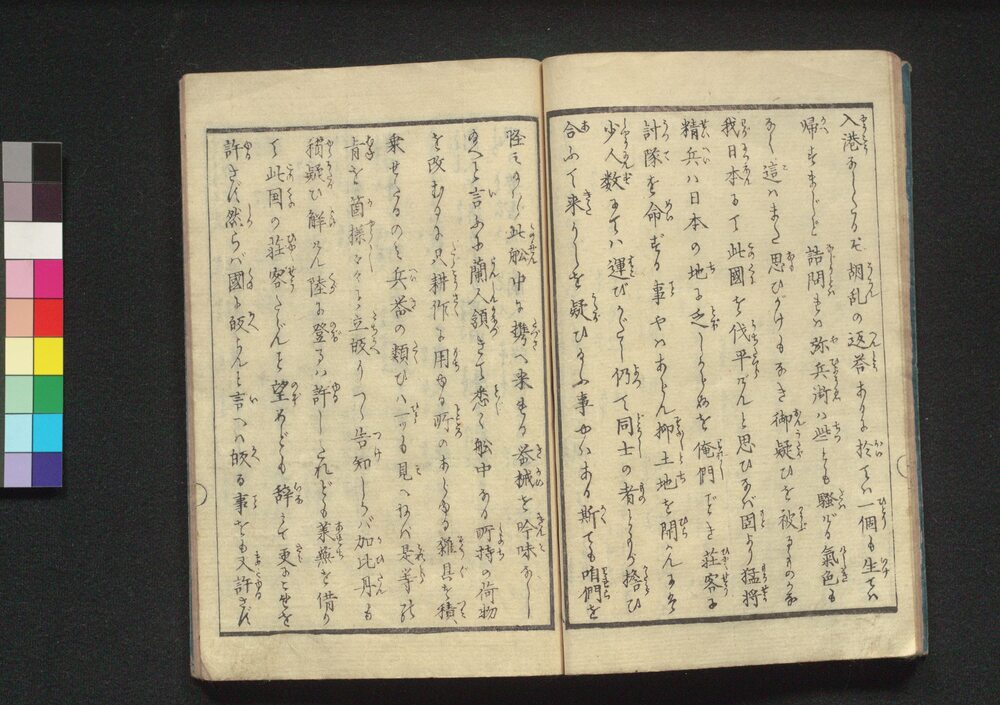 入港なしたるぞ胡乱の返答あるに於ては一個も生ては
帰すまじと詰問すれば弥兵衛は些とも騒がる氣色も
なく這はまた思ひがけもなき御疑ひを被るものかな
我日本にて此國を伐平げんと思ひなば固より猛将
精兵は日本の地に乏しからぬを俺們ごとき荘客に
計隊を命ずる事やはあらん抑土地を開んには
少人数にては運びがたし仍て同士の者どもを擔ひ
合ふて来りしを疑ひ給ふ事やはある斯ても咱們を
怪みなば此舩中に携へ来れる器械を吟味なし
給へと言ふに蘭人領きて悉く舩中なる所持の荷物
を改むるに只耕作に用ゆる所のあらゆる雑具を積
乗せたるのみ兵器の類ひは一つも見へねば是等の
旨を箇様々々と立皈りつゝ告知しらば加比丹も
稍疑ひ解けん陸に登るは許しけれども菜燕を借り
て此国の荘客たらんと望めども辞みて更に
許さず然らば國に皈らんと言へば皈る事をも又許さず